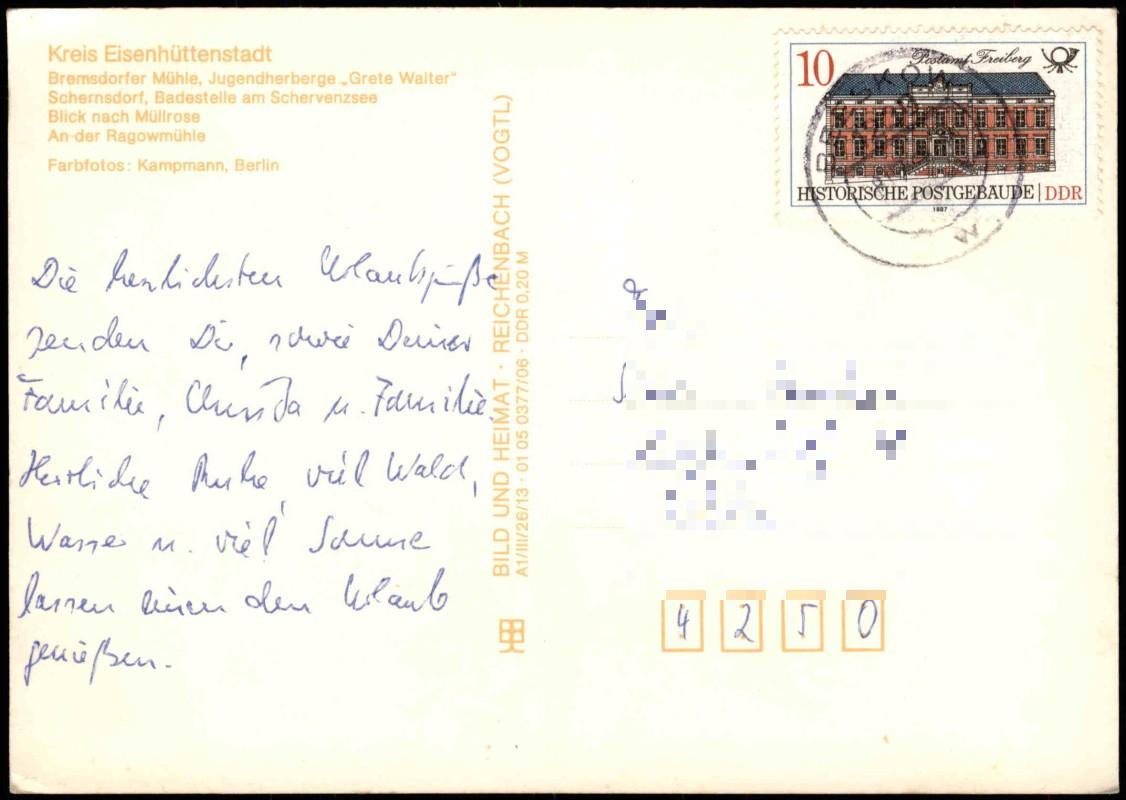 Kreis Eisenhüttenstadt
Bremsdorfer Mühle, Jugendherberge „Grete Walter“
Schernsdorf, Badestelle am Schervenzsee
Blick nach Müllrose
An der Ragowmühle
Farbfotos: Kampmann, Berlin
10
Postamt Freiberg
HISTORISCHE POSTGEBÄUDE | DDR
1987
BEESKOW
Die herzlichsten Urlaubsgrüße
senden Dir, sowie Deiner
Familie, Christa u. Familie.
Herrliche Ruhe, viel Wald,
Wasser u. viel Sonne
lassen einen den Urlaub
genießen.
BILD UND HEIMAT · REICHENBACH (VOGTL)
A1/III/26/13 · 01 05 0377/06 · DDR 0,20 M
4 2 5 0